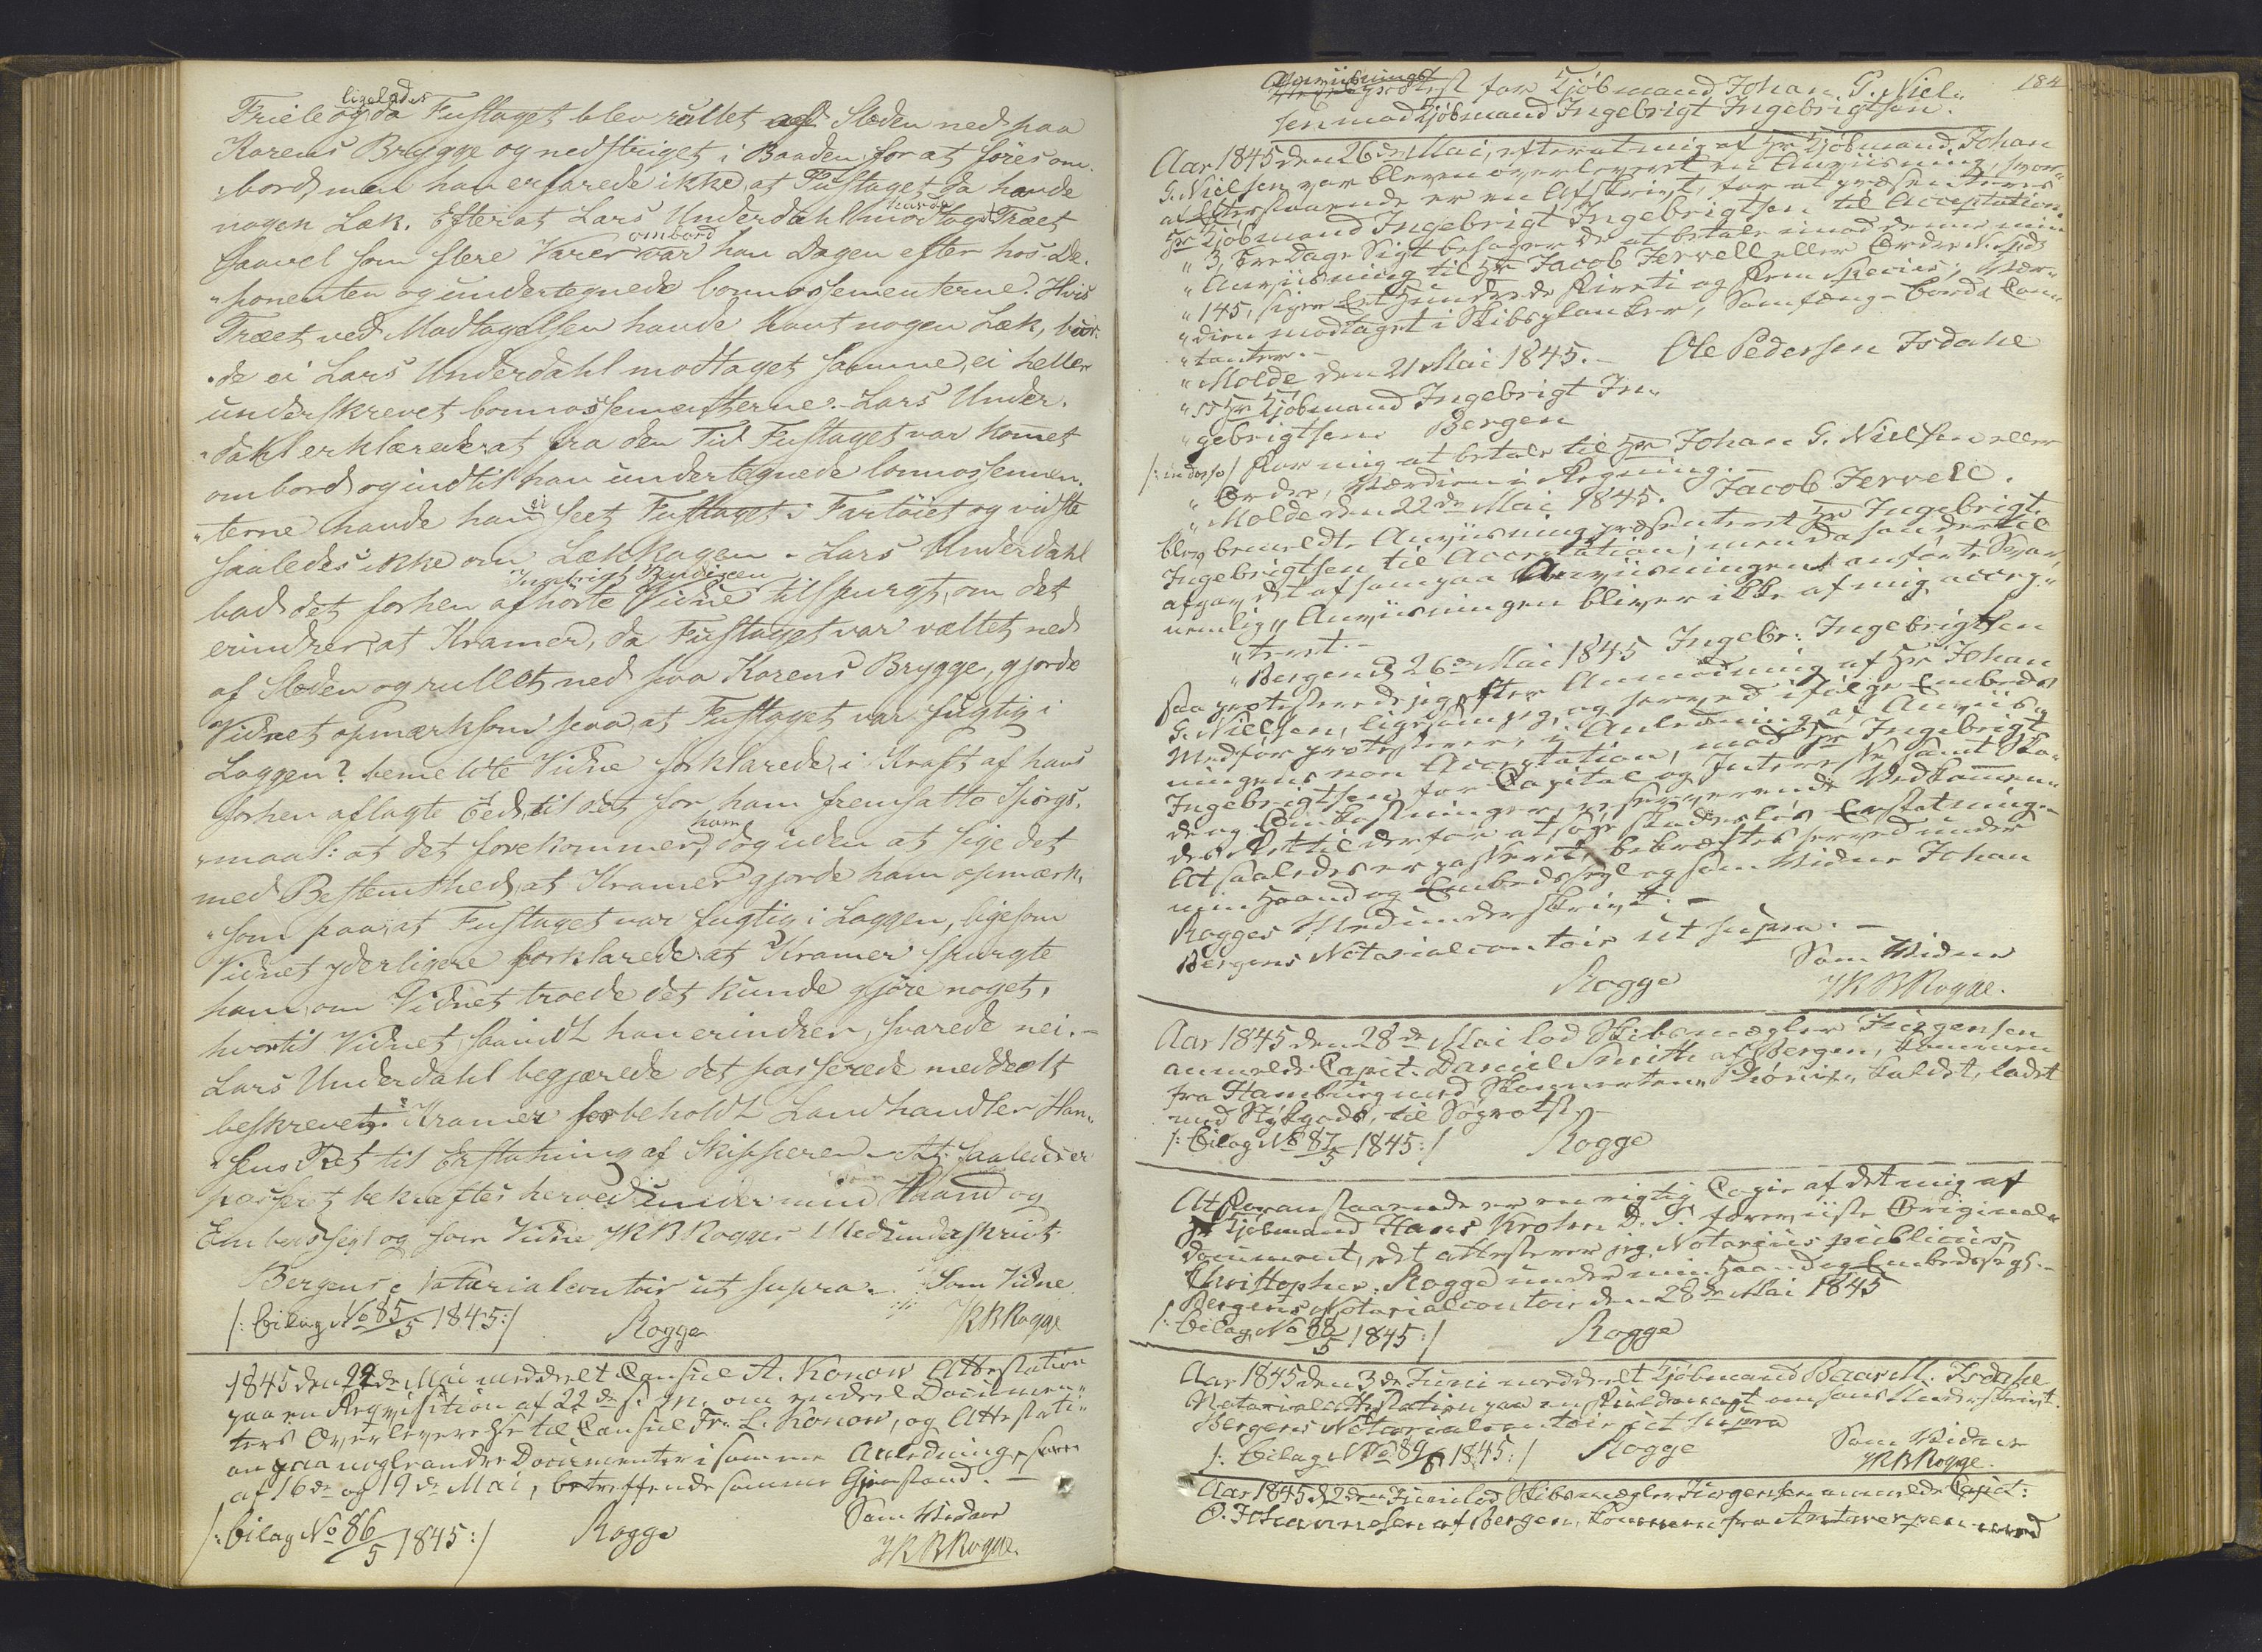 ligeledes
Friele og da Fustaget blev rullet af Sleden ned paa
Korens Brygge og nedstiiget i Baaden for at föres om
bord, men han erfarede ikke, at Fustaget da havde
nogen Læk. Efterat Lars Underdahl havde modtaget Træet
saavel som flere Varer ombord var han Dagen efter hos De-
"ponenten og undertegnede Connossementerne. Hvis
Træet ved Modtagelsen havde havt nogen Læk, bur-
"de ei Lars Underdahl modtaget samme, ei heller
underskrevet Connossementerne. - Lars Under-
"dahl erklærede at fra den Tid Fustaget var kommet
ombord og indtil han undertegnede Connossemen-
"terne havde han ei seet Fustaget i Fartöiet og vidste
saaledes ikke om Lækkagen. - Lars Underdahl
bad det forhen afhörte Vidne Ingebrigt tilspurgt, om det
erindrer, at Kramer, da Fustaget var væltet ned
af Sleden og rullet ned paa Korens Brygge, gjorde
Vidnet opmærksom paa, at Fustaget var fugtig i
Laggen? bemeldte Vidne forklarede, i Kraft af hans
forhen aflagte Eed, til det for ham fremsatte Spörgs-
"maal: at det forekommer ham, dog uden at sige det
med Bestemthed, at Kramer gjorde ham opmærk-
"som paa, at Fustaget var fugtig i Laggen, ligesom
Vidnet yderligere forklarede at Kramer spurgte
ham, om Vidnet troede det kunde gjöre noget,
hvortil Vidnet, saavidt han erindrer, svarede nei. -
Lars Underdahl begjærede det passerede meddeelt
beskrevet. Kramer forbeholdt Landhandler Han-
"sens Ret til Erstatning af Skipperen. - At saaledes er
passert bekræftes herved under min Haand og
Embedsseigl og som Vidne JRB Rogges Medunderskrivt.
Bergens Notarialcontoir ut supra. Som Vidne
/: Bilag No 85/5 1845:/ Rogge JRBRogge
1845 den 22de Mai meddeelt Consul A. Konow Attestation
paa en Reqvisition af 22de s. M. om endeel Documen-
ters Overleverelse til Consul Fr. L. Konow, og Attestati-
on paa nogle andre Documenter i samme Anledning,
af 16de og 19de Mai, betreffende samme Gjenstand. -
Som Vidne
/: Bilag No 86/5 1845:/ Rogge JRBRogge.
184
Anviisnings
protest for Kjöbmand Johan G. Niel-
sen mod Kjöbmand Ingebrigt Ingebrigtsen.
Aar 1845 den 26de Mai, efterat mig af Hr Kjöbmand Johan
G. Nielsen var bleven overleveret en Anviisning, hvor-
af Efterstaaende er en Afskrivt, for at præsenteres
Hr Kjöbmand Ingebrigt Ingebrigtsen til Acceptation.
" 3, tre Dage Sigt behager De at betale imod denne min
" Anviisning til Hr Jacob Jervell eller Ordre N. Spd
" 145, siger Et Hundrede Fireti og Fem Species; Vær-
" dien modtaget i Skibsplanker,
"
" Molde den 21 Mai 1845. - Ole Pedersen Isdahl
" SS Hr Kjöbmand Ingebrigt In-
" gebrigtsen Bergen
/:indorso/ For mig at betale til Hr Johan G. Nielsen eller
" Ordre, Værdien i Regning. -
" Molde den 22de Mai 1845. Jacob Jervell.
blev bemeldte Anviisning præsenteret Hr Ingebrigt
Ingebrigtsen til Acceptation; men da han dertil
afgav det af ham paa Anviisningen anförte Svar,
nemlig "Anviisningen bliver ikke af mig accep-
"teret. -
" Bergen d 26de Mai 1845 Ingebr: Ingebrigtsen
saa protesterede jeg efter Anmodning af Hr Johan
G. Nielsen, ligesom jeg og herved ifölge Embeds
Medför protesterer, i Anledning af Anviis-
ningens non Acceptation, mod Hr Ingebrigt
Ingebrigtsen for Capital og Interesse samt Ska-
de og Omkostninger, reserverende Vedkommen-
des Ret til derfor at söge skadeslös Erstatning. -
At saaledes er passeret, bekræftes herved under
min Haand og Embedssegl og som Vidne Johan
Rogges Medunderskrivt. -
Bergens Notarialcontoir ut supra. -
Rogge Som Vidne
JRBRogge.
Aar 1845 den 28de Mai lod Skibsmægler Jürgensen
anmelde Capit. Daniel Smith af Bergen, kommen
fra Hamburg med Skonnerten "Phönix" kaldet, ladet
med Stykgods, til Söprotest. -
/: Bilag No 87/5 1845:/ Rogge
At Foranstaaende er en rigtig Copie af det mig af
Hr Kjöbmand Hans Krohn D. S. foreviiste Original-
document, det attesterer jeg Notarius publicus
Christopher Rogge under min Haand og Embedssegl. -
Bergens Notarialcontoir den 28de Mai 1845
/: Bilag No 88/5 1845:/ Rogge
Aar 1845 den 3de Juni meddeelt Kjöbmand Baar M. Isdahl
Notarialattestation paa en Fuldmagt om hans Underskrivt.
Bergens Notarialcontoir ut supra
/: Bilag No 89/6 1845:/ Rogge Som Vidne
JRBRogge.
Aar 1845 d 2den Juni lod Skibsmægler Jürgensen anmelde Capit:
O. Johannesen af Bergen, kommen fra Antwerpen med